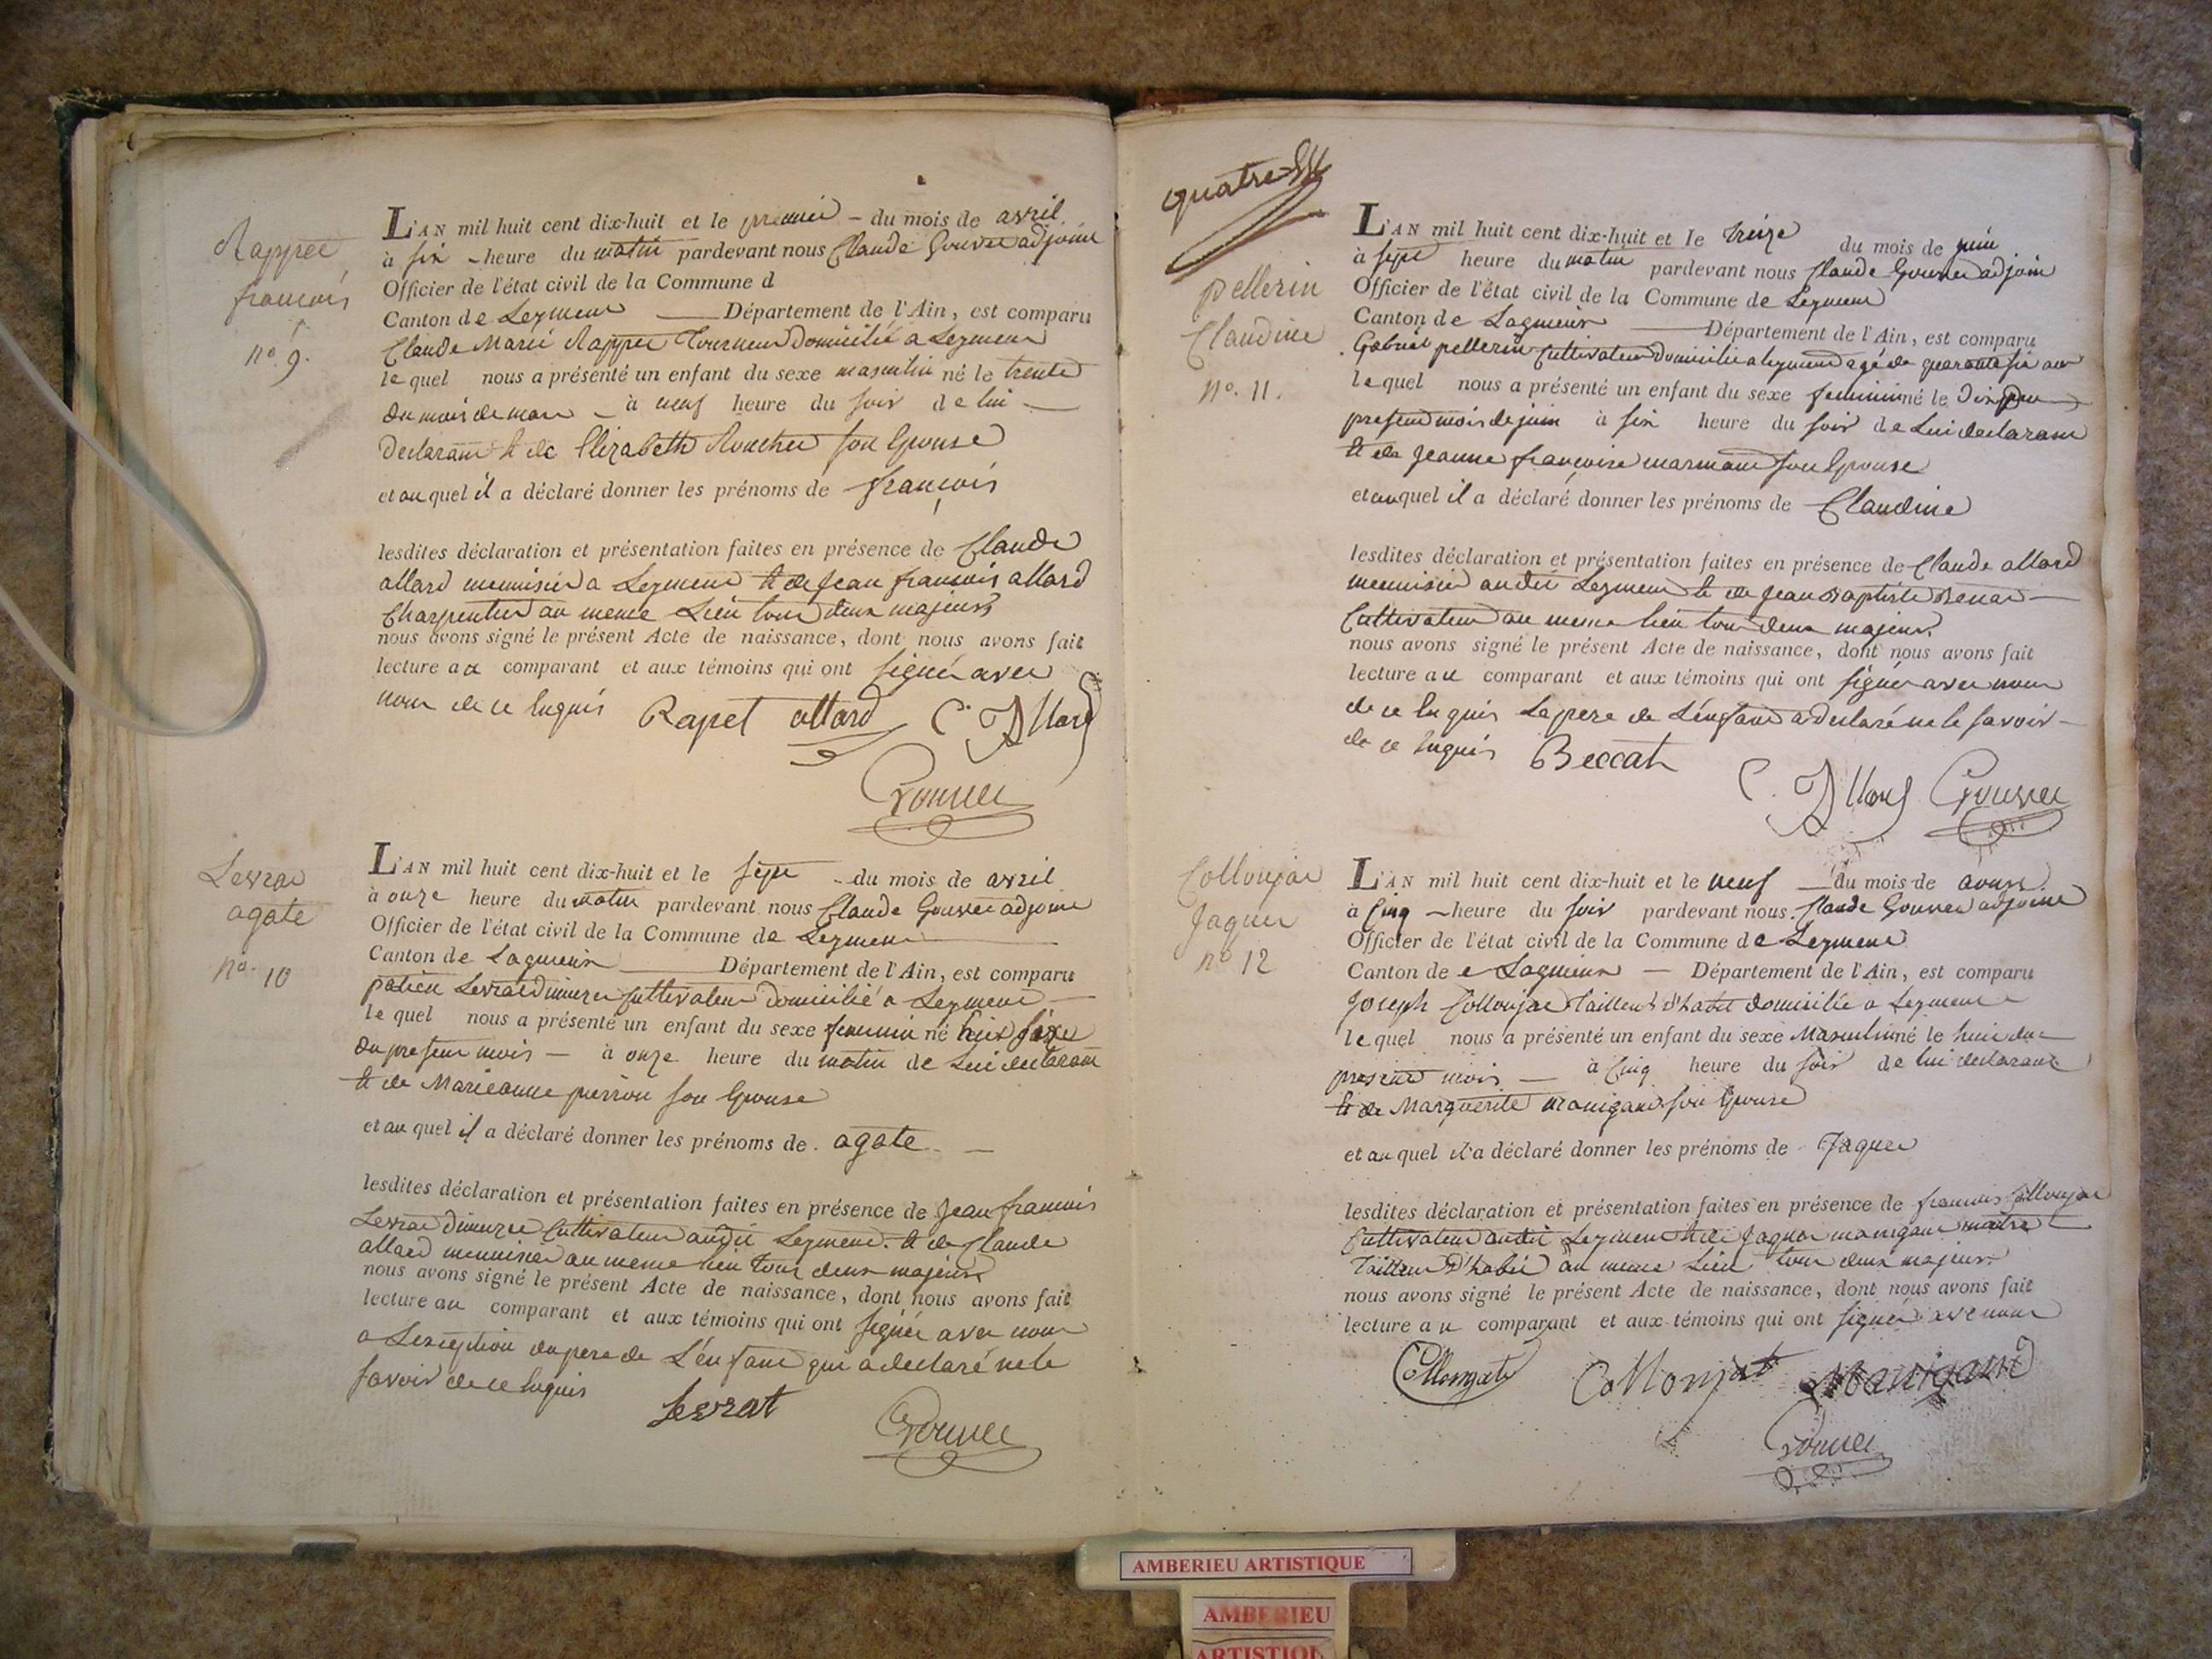 Rappet
françois
nº 9.
L'AN mil huit cent dix-huit et le premier – du mois de avril
à six – heure du matin pardevant nous Claude Gouvee adjoint
Officier de l'état civil de la Commune d
Canton de Leyment Département de l'Ain, est comparu
Claude Marie Rappet Tourneur domicilié a Leyment
lequel nous a présenté un enfant du sexe masculin né le trente
du mois de mars – à neuf heure du soir de lui –
declarant et de Elizabeth son Epouse
et au quel il a déclaré donner les prénoms de françois
lesdites déclaration et présentation faites en présence de Claude
allard menuisier a Leyment et de Jean françois allard
Charpentier au meme Lieu tous deux majeurs
nous avons signé le présent Acte de naissance, dont nous avons fait
lecture au comparant et aux témoins qui ont signé avec
nous de ce enquis Rapet allard C. Allard
Gouvee
Levrat
agate
nº 10
L'AN mil huit cent dix-huit et le sept – du mois de avril
à onze heure du matin pardevant nous Claude Gouvee adjoint
Officier de l'état civil de la Commune de Leyment
Canton de Lagnieux Département de l'Ain, est comparu
Levrat Cultivateur domicilié a Leyment –
lequel nous a présenté un enfant du sexe feminin né
du present mois – à onze heure du matin de Lui declarant
et de Marieanne son Epouse
et au quel il a déclaré donner les prénoms de . agate –
lesdites déclaration et présentation faites en présence de Jean francois
Levrat Cultivateur audit Leyment. et de Claude
allard menuisier au meme lieu tous deux majeurs
nous avons signé le présent Acte de naissance, dont nous avons fait
lecture au comparant et aux témoins qui ont signé avec nous
a Lexception du pere de L'enfant qui a declaré ne le
savoir de ce enquis Levrat
Gouvee
quatre
pellerin
Claudine
Nº. 11.
L'AN mil huit cent dix-huit et le treize du mois de juin
à sept heure du matin pardevant nous Claude Gouvee adjoint
Officier de l'état civil de la Commune de Leyment
Canton de Lagnieux Département de l'Ain, est comparu
Gabriel pellerin Cultivateur domicilié a leyment agé de quarante six ans
lequel nous a présenté un enfant du sexe feminin né le dix du
present mois de juin à six heure du soir de Lui declarant
et de Jeanne françoise marmant son Epouse
et au quel il a déclaré donner les prénoms de Claudine
lesdites déclaration et présentation faites en présence de Claude allard
menuisier audit Leyment et de Jean Baptiste –
Cultivateur au meme lieu tous deux majeurs.
nous avons signé le présent Acte de naissance, dont nous avons fait
lecture au comparant et aux témoins qui ont signé avec nous
de ce enquis Le pere de L'enfant a declaré ne le savoir –
de ce enquis Beccat
C. Allard Gouvee
Collonjat
Jaques
nº 12
L'AN mil huit cent dix-huit et le neuf – du mois de aoust
à Cinq – heure du soir pardevant nous Claude Gouvee adjoint
Officier de l'état civil de la Commune de Leyment
Canton de Lagnieux – Département de l'Ain, est comparu
Joseph Collonjat Tailleur d'habit domicilié a Leyment
lequel nous a présenté un enfant du sexe Masculin né le huit du
present mois – à Cinq heure du soir de lui declarant
et de Marguerite manigand son Epouse
et au quel il a déclaré donner les prénoms de Jaques
lesdites déclaration et présentation faites en présence de francois Collonjat
Cultivateur audit Leyment et de Jaques manigand maitre
Tailleur d'habit au meme Lieu tous deux majeurs
nous avons signé le présent Acte de naissance, dont nous avons fait
lecture au comparant et aux témoins qui ont signé avec nous
Collongat Collonjat Manigand
Gouvee
AMBERIEU ARTISTIQUE
AMBERIEU
ARTISTIQU